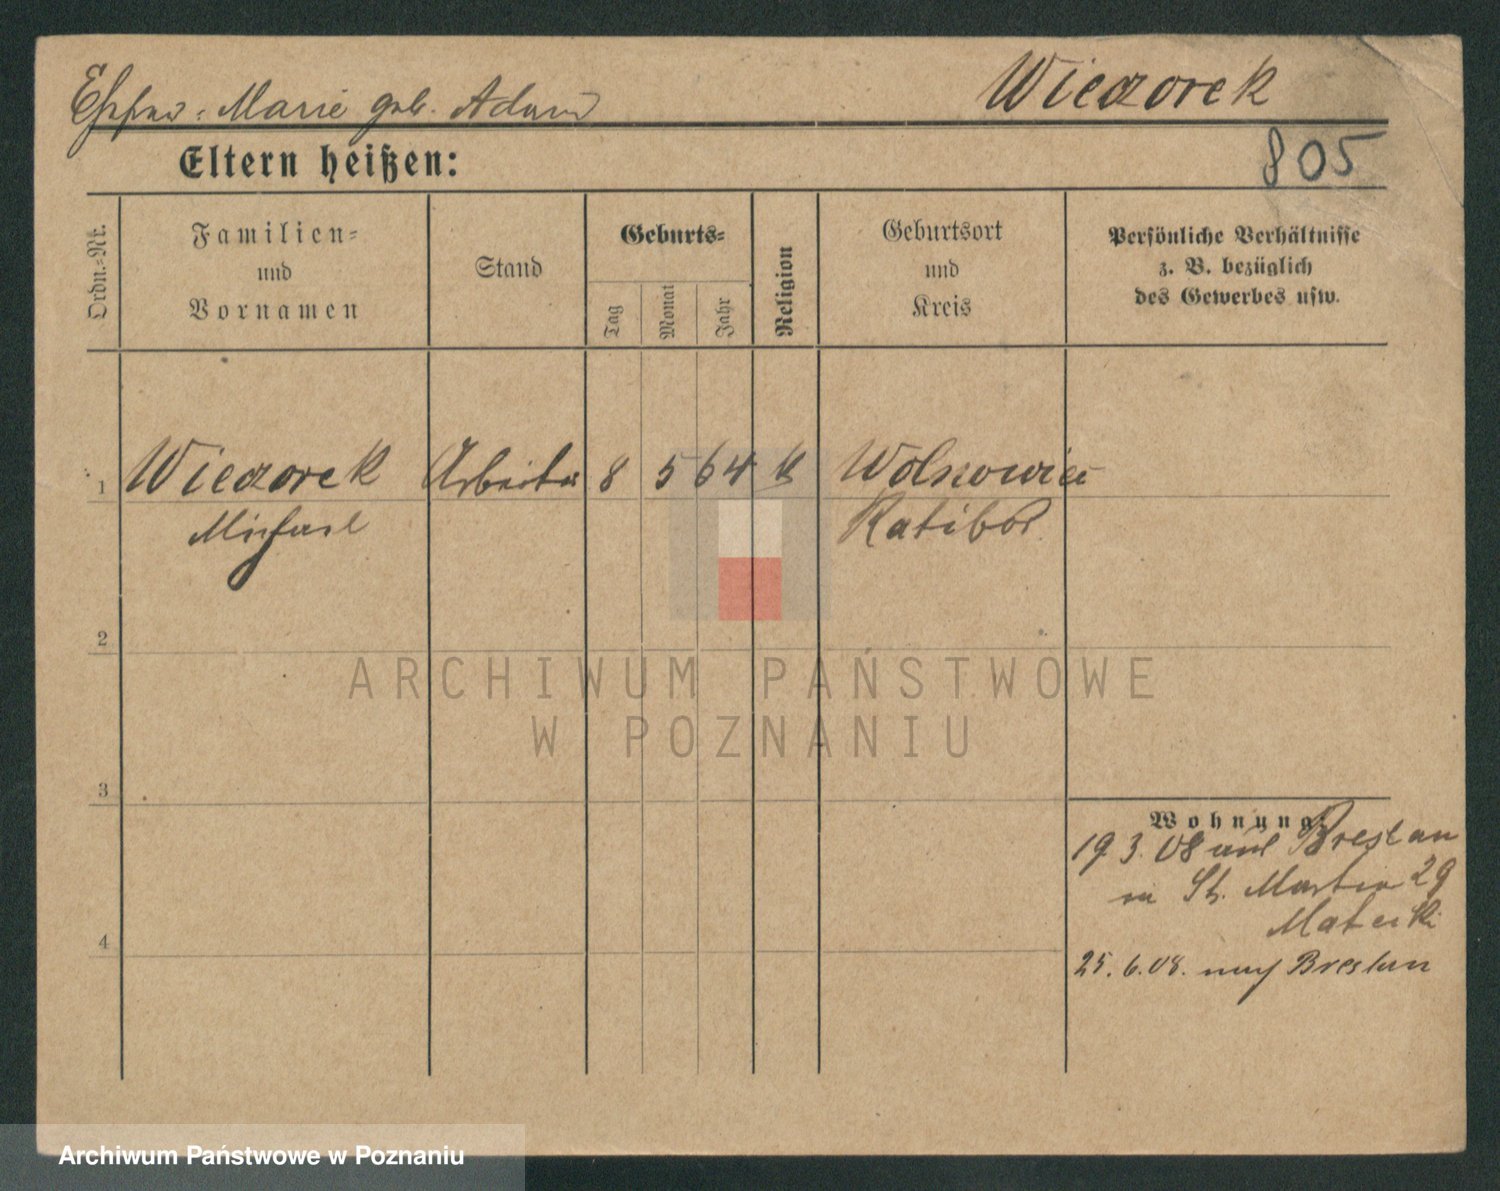 Ehefrau: Marie geb. Adam
Wieczorek
Eltern heißen:
805
Ordn.-Nr.
Familien-
und
Vornamen
Stand
Geburts-
Tag
Monat
Jahr
Religion
Geburtsort
und
Kreis
Persönliche Verhältnisse
z. B. bezüglich
des Gewerbes usw.
1 Wieczorek Arbeiter 8 5 64 k Wolnowice
Michael Ratibor
2
ARCHIWUM PAŃSTWOWE
W POZNANIU
3
Wohnung
19.3.08 aus Breslau
in St. Martin 29
25.6.08. nach Breslau
4
Archiwum Państwowe w Poznaniu